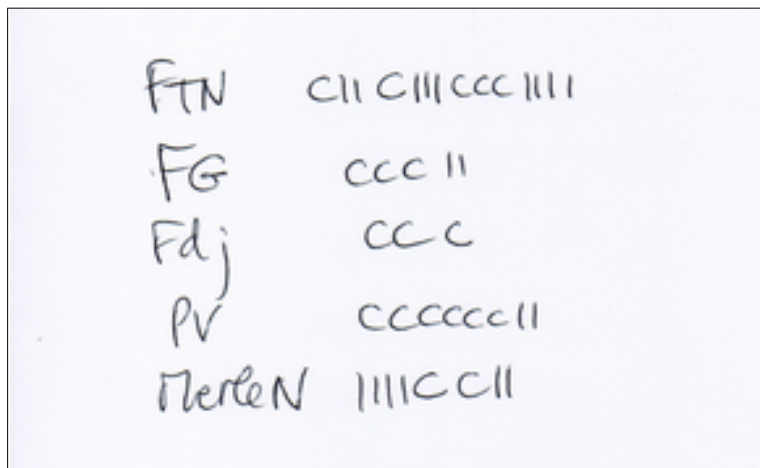 FTN CIICIIICCCIIII
FG CCCII
Fdj CCC
PV CCCCCCII
MerleN IIIICCII